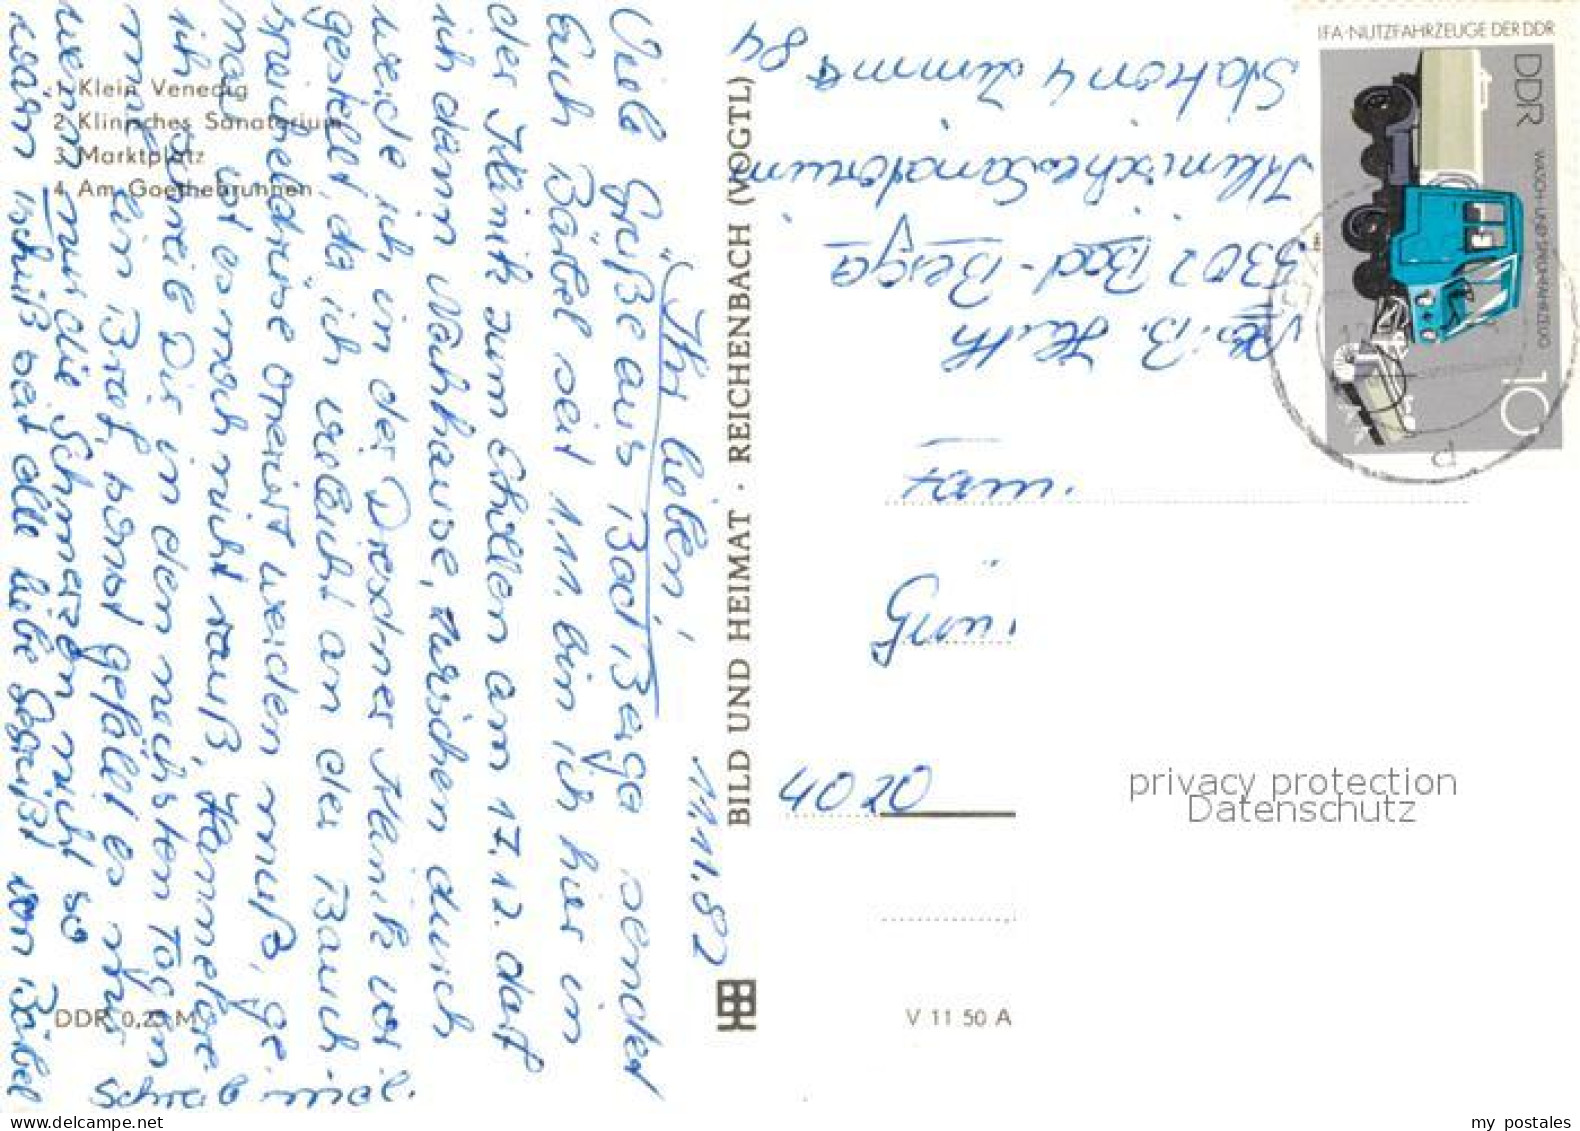 1 Klein Venedig
2 Klinisches Sanatorium
3 Marktplatz
4 Am Goethebrunnen
DDR 0,25 M
V 11 50 A
BILD UND HEIMAT · REICHENBACH (VOGTL)
11.11.82
Ihr lieben!
Viele Grüße aus Bad Berga sendet
Euch Bärbel seit 1.11. bin ich hier in
der Klinik zum Erhollen am 17.12. darf
ich dann Nachhause, zwischen durch
werde ich in der Dresdner Klinik vor
gestellt, da ich vieleicht an der Bauch
speicheldrüse operiert werden muß, ge
nau ist es noch nicht rauß, Hannelore
ich schreib Dir in den nächsten Tagen
ein Brief, sonst gefällt es mir
wenn nur die Schmerzen nicht so
wärn tschüß seit alle liebe gegrüßt von Bärbel
schreib mir
B. Huth
5302 Bad-Berga
Klinisches Sanatorium
Station 4 Zimmer 84
4020
IFA-NUTZFAHRZEUGE DER DDR
DDR
WASCH-UND SPRÜHFAHRZEUG
10
privacy protection
Datenschutz
my postales